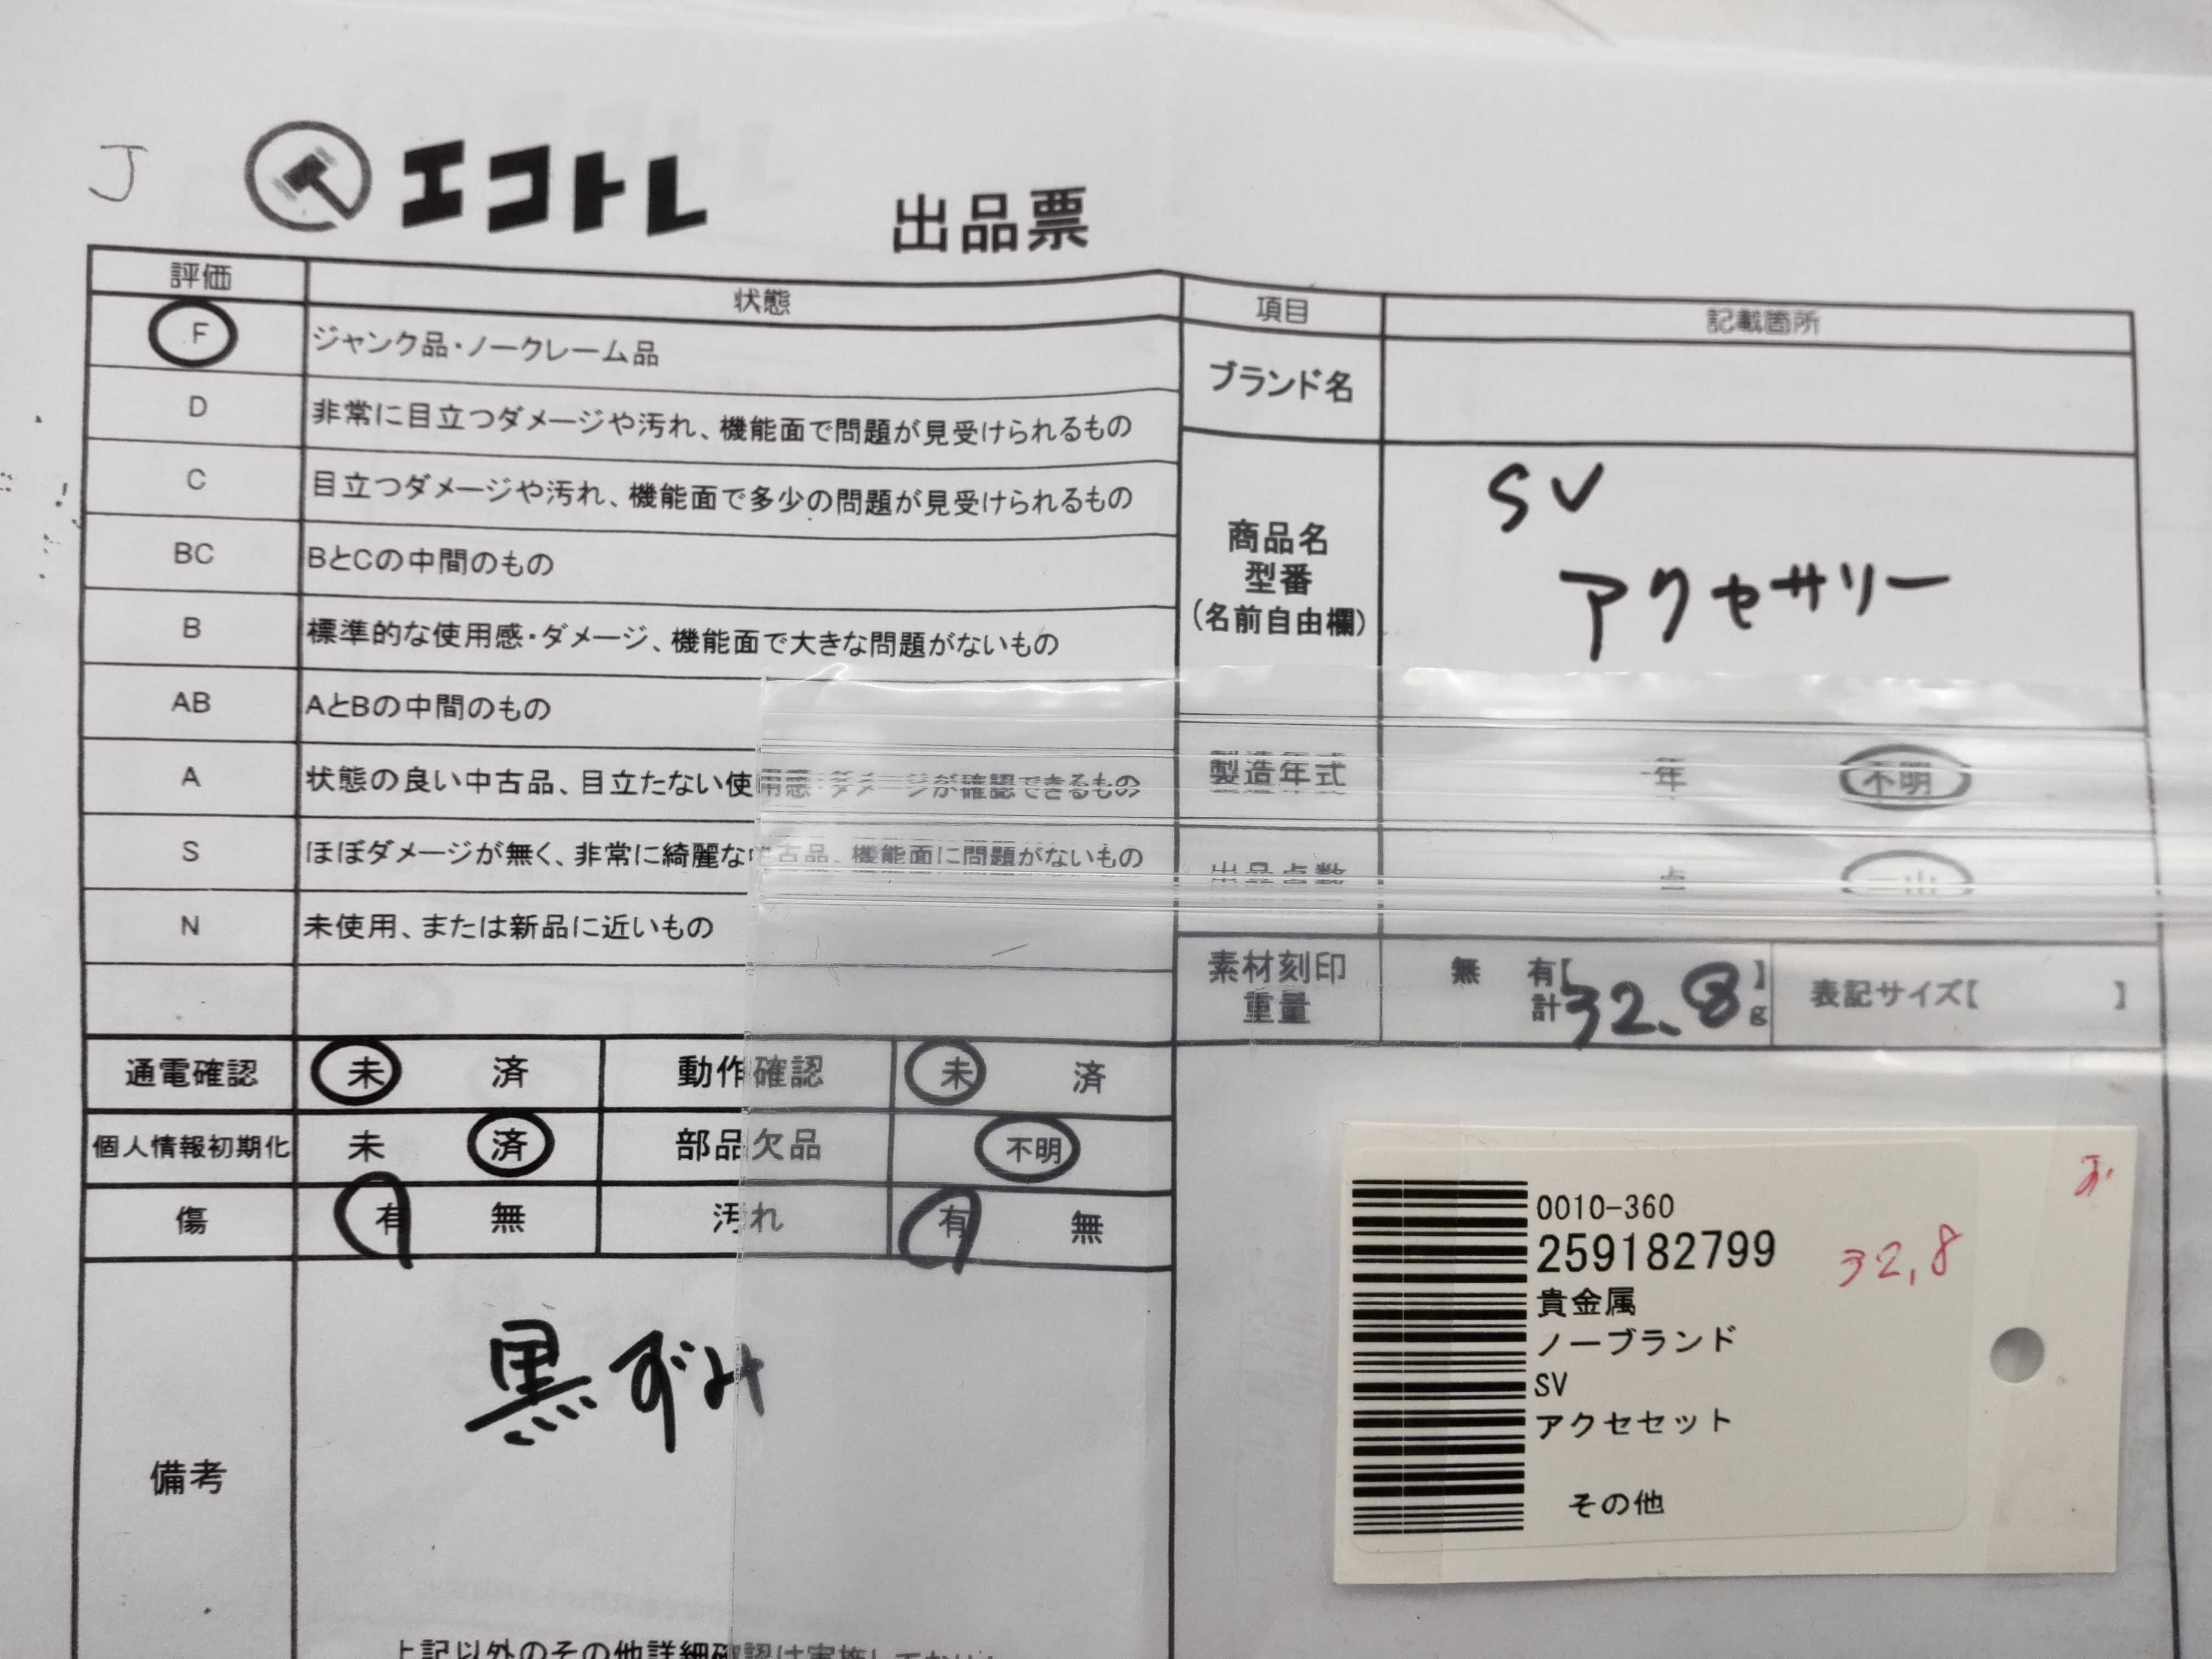 J
エコトレ
出品票
評価 状態
F ジャンク品・ノークレーム品
D 非常に目立つダメージや汚れ、機能面で問題が見受けられるもの
C 目立つダメージや汚れ、機能面で多少の問題が見受けられるもの
BC BとCの中間のもの
B 標準的な使用感・ダメージ、機能面で大きな問題がないもの
AB AとBの中間のもの
A 状態の良い中古品、目立たない使用感・ダメージが確認できるもの
S ほぼダメージが無く、非常に綺麗な中古品、機能面に問題がないもの
N 未使用、または新品に近いもの
項目 記載箇所
ブランド名
商品名
型番
(名前自由欄)
SV
アクセサリー
製造年式 年 不明
出品点数 点 一山
素材刻印 無 有【 】
重量 計32.8g
表記サイズ【 】
通電確認 未 済 動作確認 未 済
個人情報初期化 未 済 部品欠品 不明
傷 有 無 汚れ 有 無
備考
黒ずみ
上記以外のその他詳細確認は実施しており
0010-360
259182799
貴金属
ノーブランド
SV
アクセセット
その他
32,8